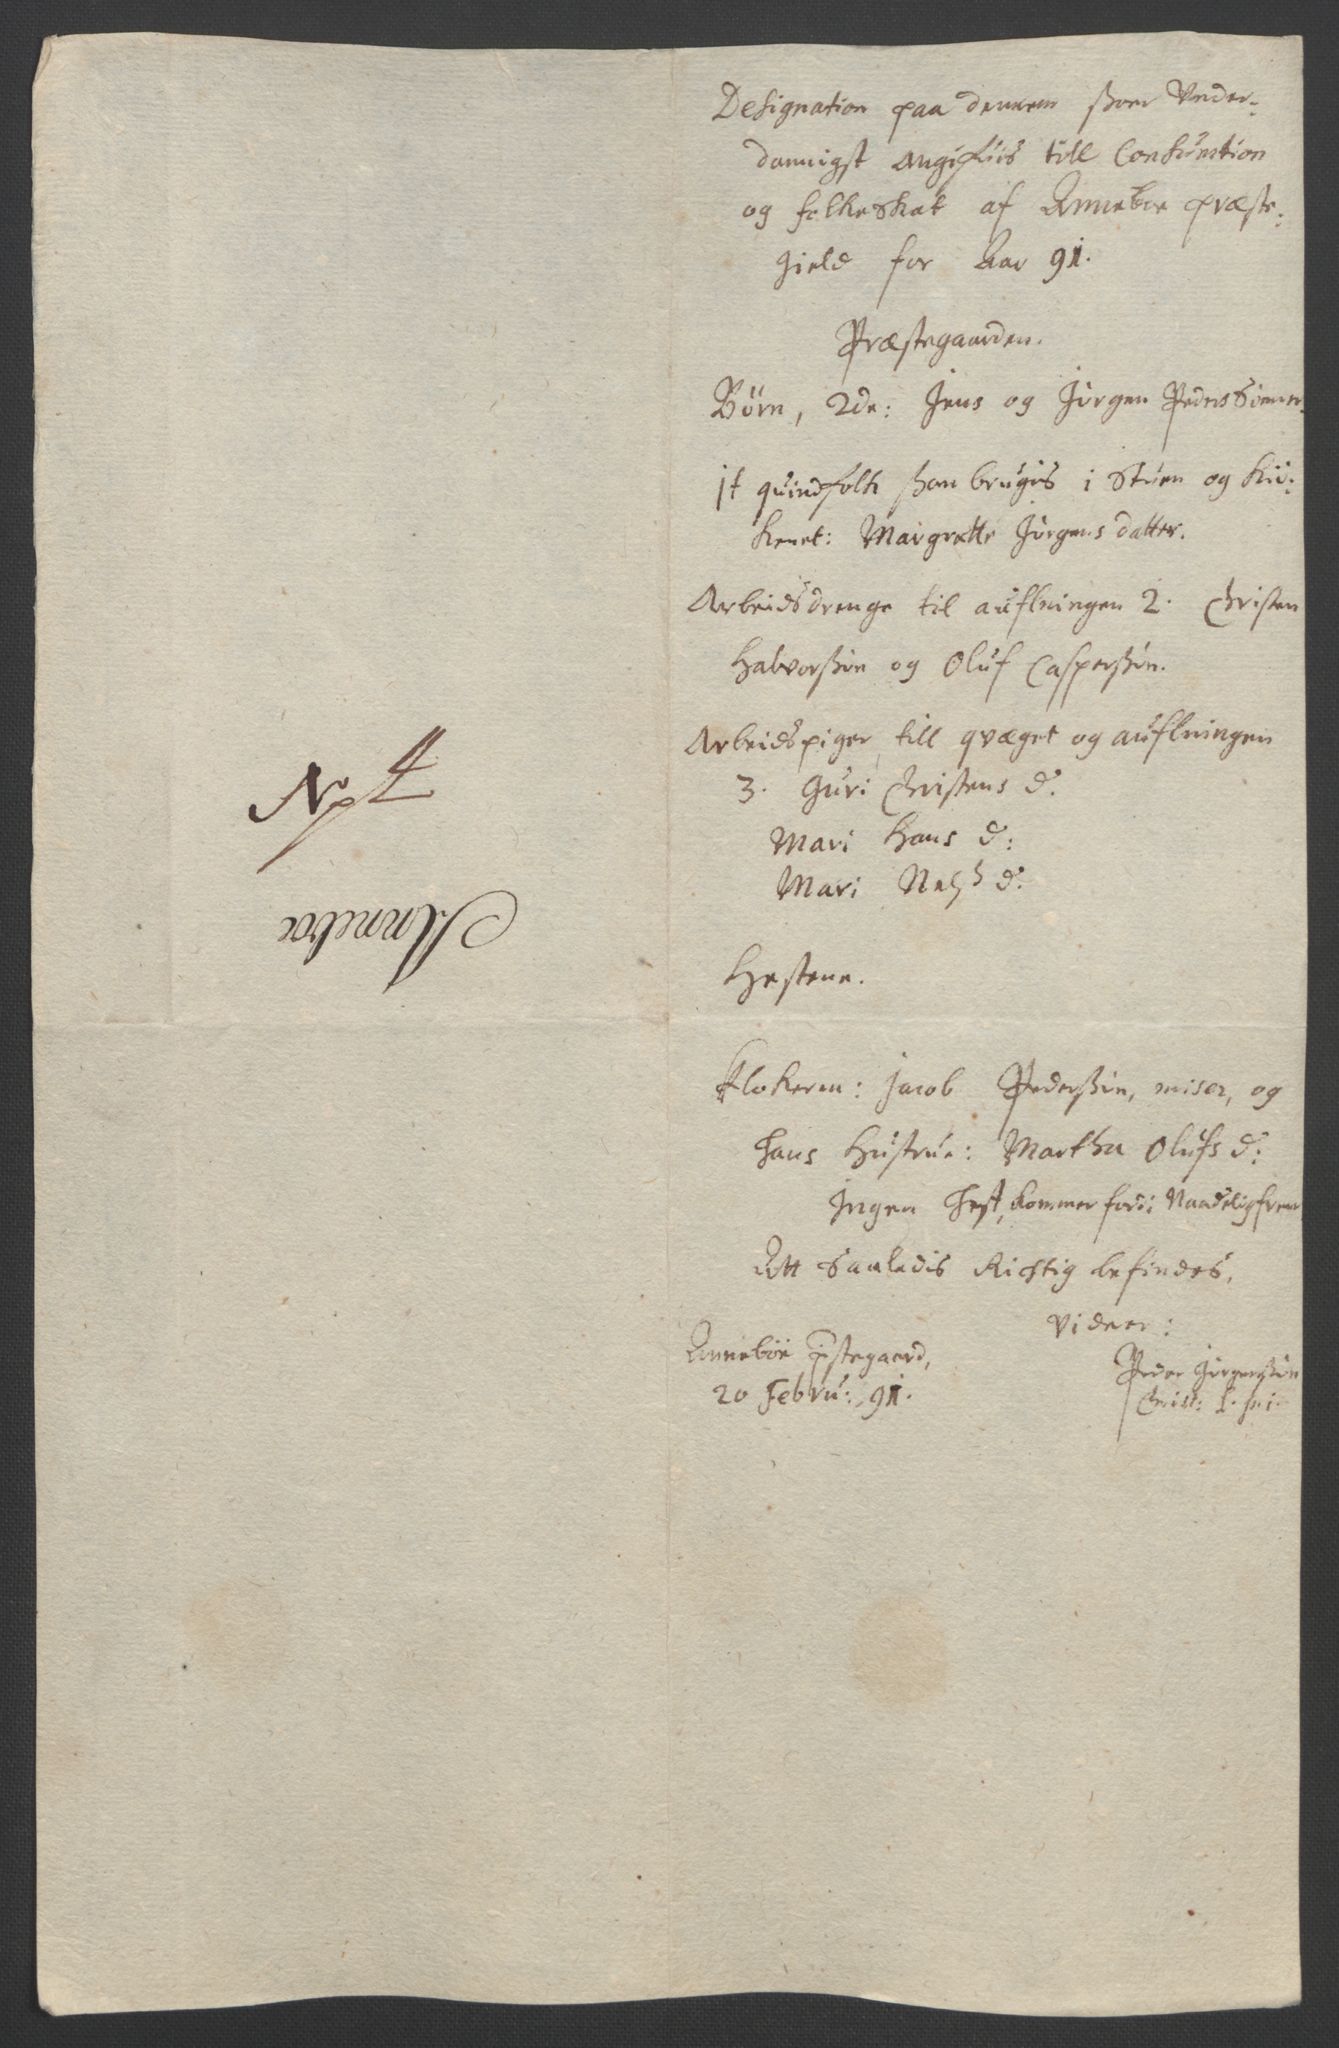 Designation paa dennem som Under-
dannigst angifuis till Consumtion
og folkeskat af Annebøe præste-
gield for Aar 91.
Præstegaarden.
Börn, 2de: Jens og Jürgen Peders Sönner
jt quindfolk som brugis i Stuen og Kiö-
kenet: Margrette Jürgens datter.
Arbeidsdrenge til auflningen 2. Christen
Halvorssön og Oluf Casperssön.
Arbeidspiger till qvæget og auflningen
3. Guri Christens d:
Mari Hans d:
Mari Nels d:
No 4
Annebøe
Hestene.
Klokeren: Jacob Pederssön, og
hans Hustrue: Martha Olufs d:
Ingen hest, kommer fordi Naadeligfrem
Att Saaledis Rictig befindes,
Vidner:
Anneböe pstegaard,
20 Febru: 91.
Peder Jürgenssön